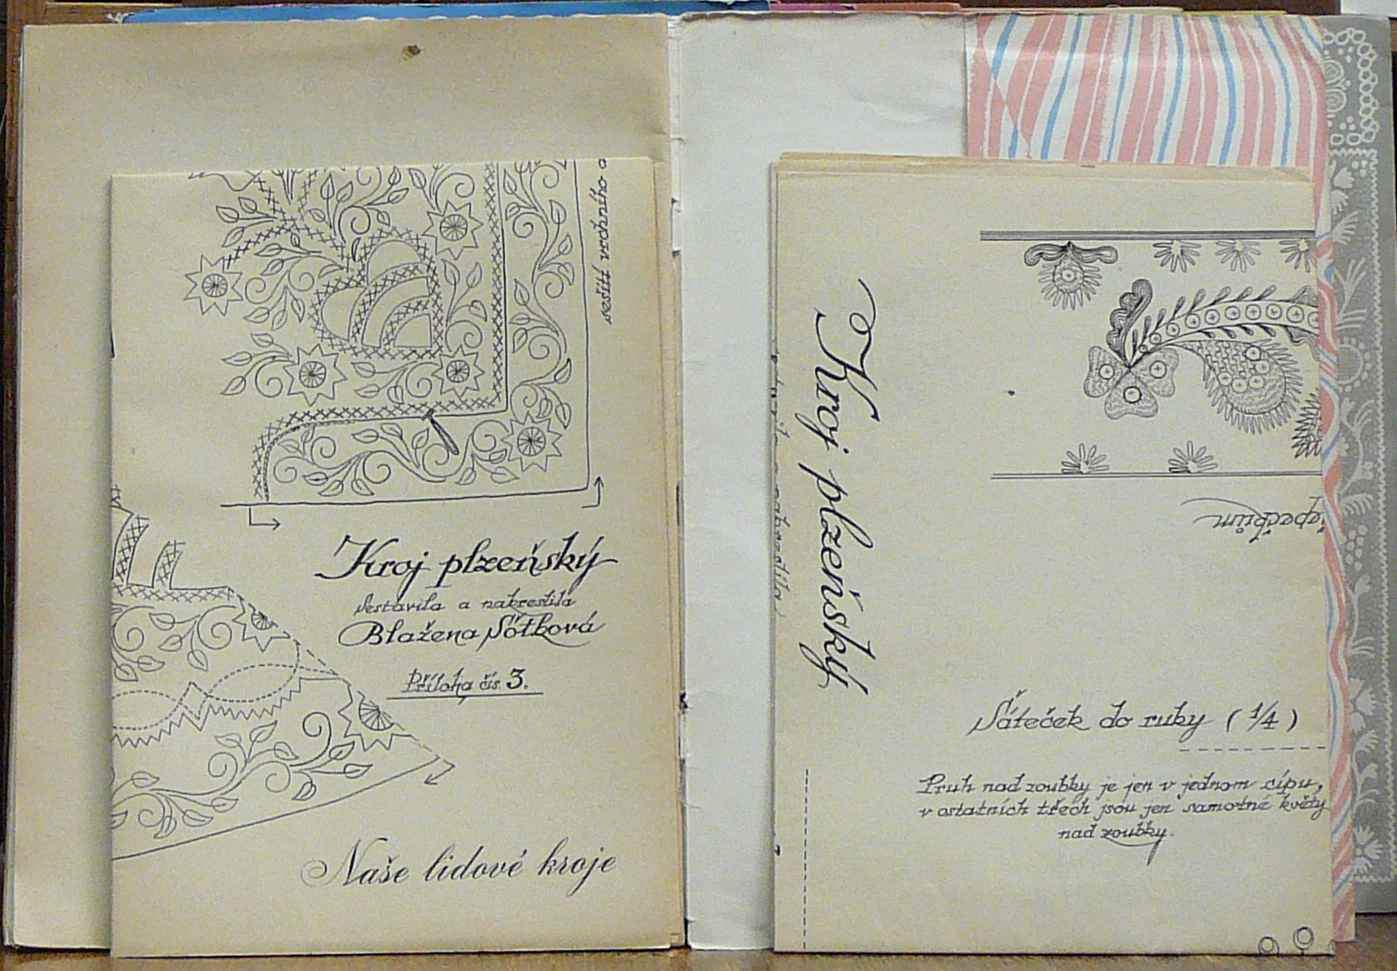 sešití vrchního o
Kroj plzeňský
Sestavila a nakreslila
Blažena Šotková
Příloha čís. 3.
Naše lidové kroje
Kroj plzeňský
a nakreslila
Šáteček do ruky (1/4)
Pruh nad zoubky je jen v jednom cípu,
v ostatních třech jsou jen samotné květy
nad zoubky.